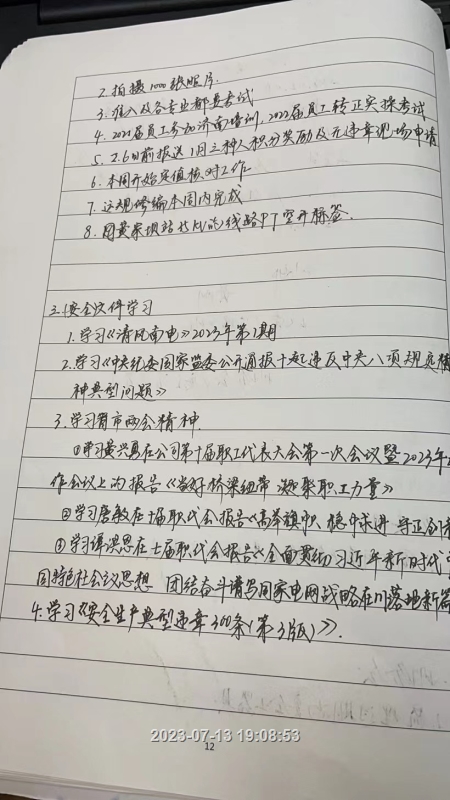 2. 拍摄1000张照片.
3. 准入及各专业都要考试
4. 2021届员工参加济南培训, 2022届员工转正实操考试
5. 2.6日前报送1月三种人积分奖励及无违章现场申请
6. 本周开始定值核对工作
7. 运规修编本周内完成
8. 周家坝站35kV的线路PT空开标签.
三. 安全文件学习
1. 学习《清风南电》2023年第1期
2. 学习《中央纪委国家监委公开通报十起违反中央八项规定精
神典型问题》
3. 学习省市两会精神.
①学习黄兴勇在公司第十届职工代表大会第一次会议暨2023年
作会议上的报告《当好桥梁纽带 凝聚职工力量》
②学习唐敏在十届职代会报告《高举旗帜 稳中求进 守正创
③学习谭洪恩在七届职代会报告《全面贯彻习近平新时代
国特色社会主义思想 团结奋斗谱写国家电网战略在川落地新篇
4. 学习《安全生产典型违章300条(第3版)》.
2023-07-13 19:08:53
12